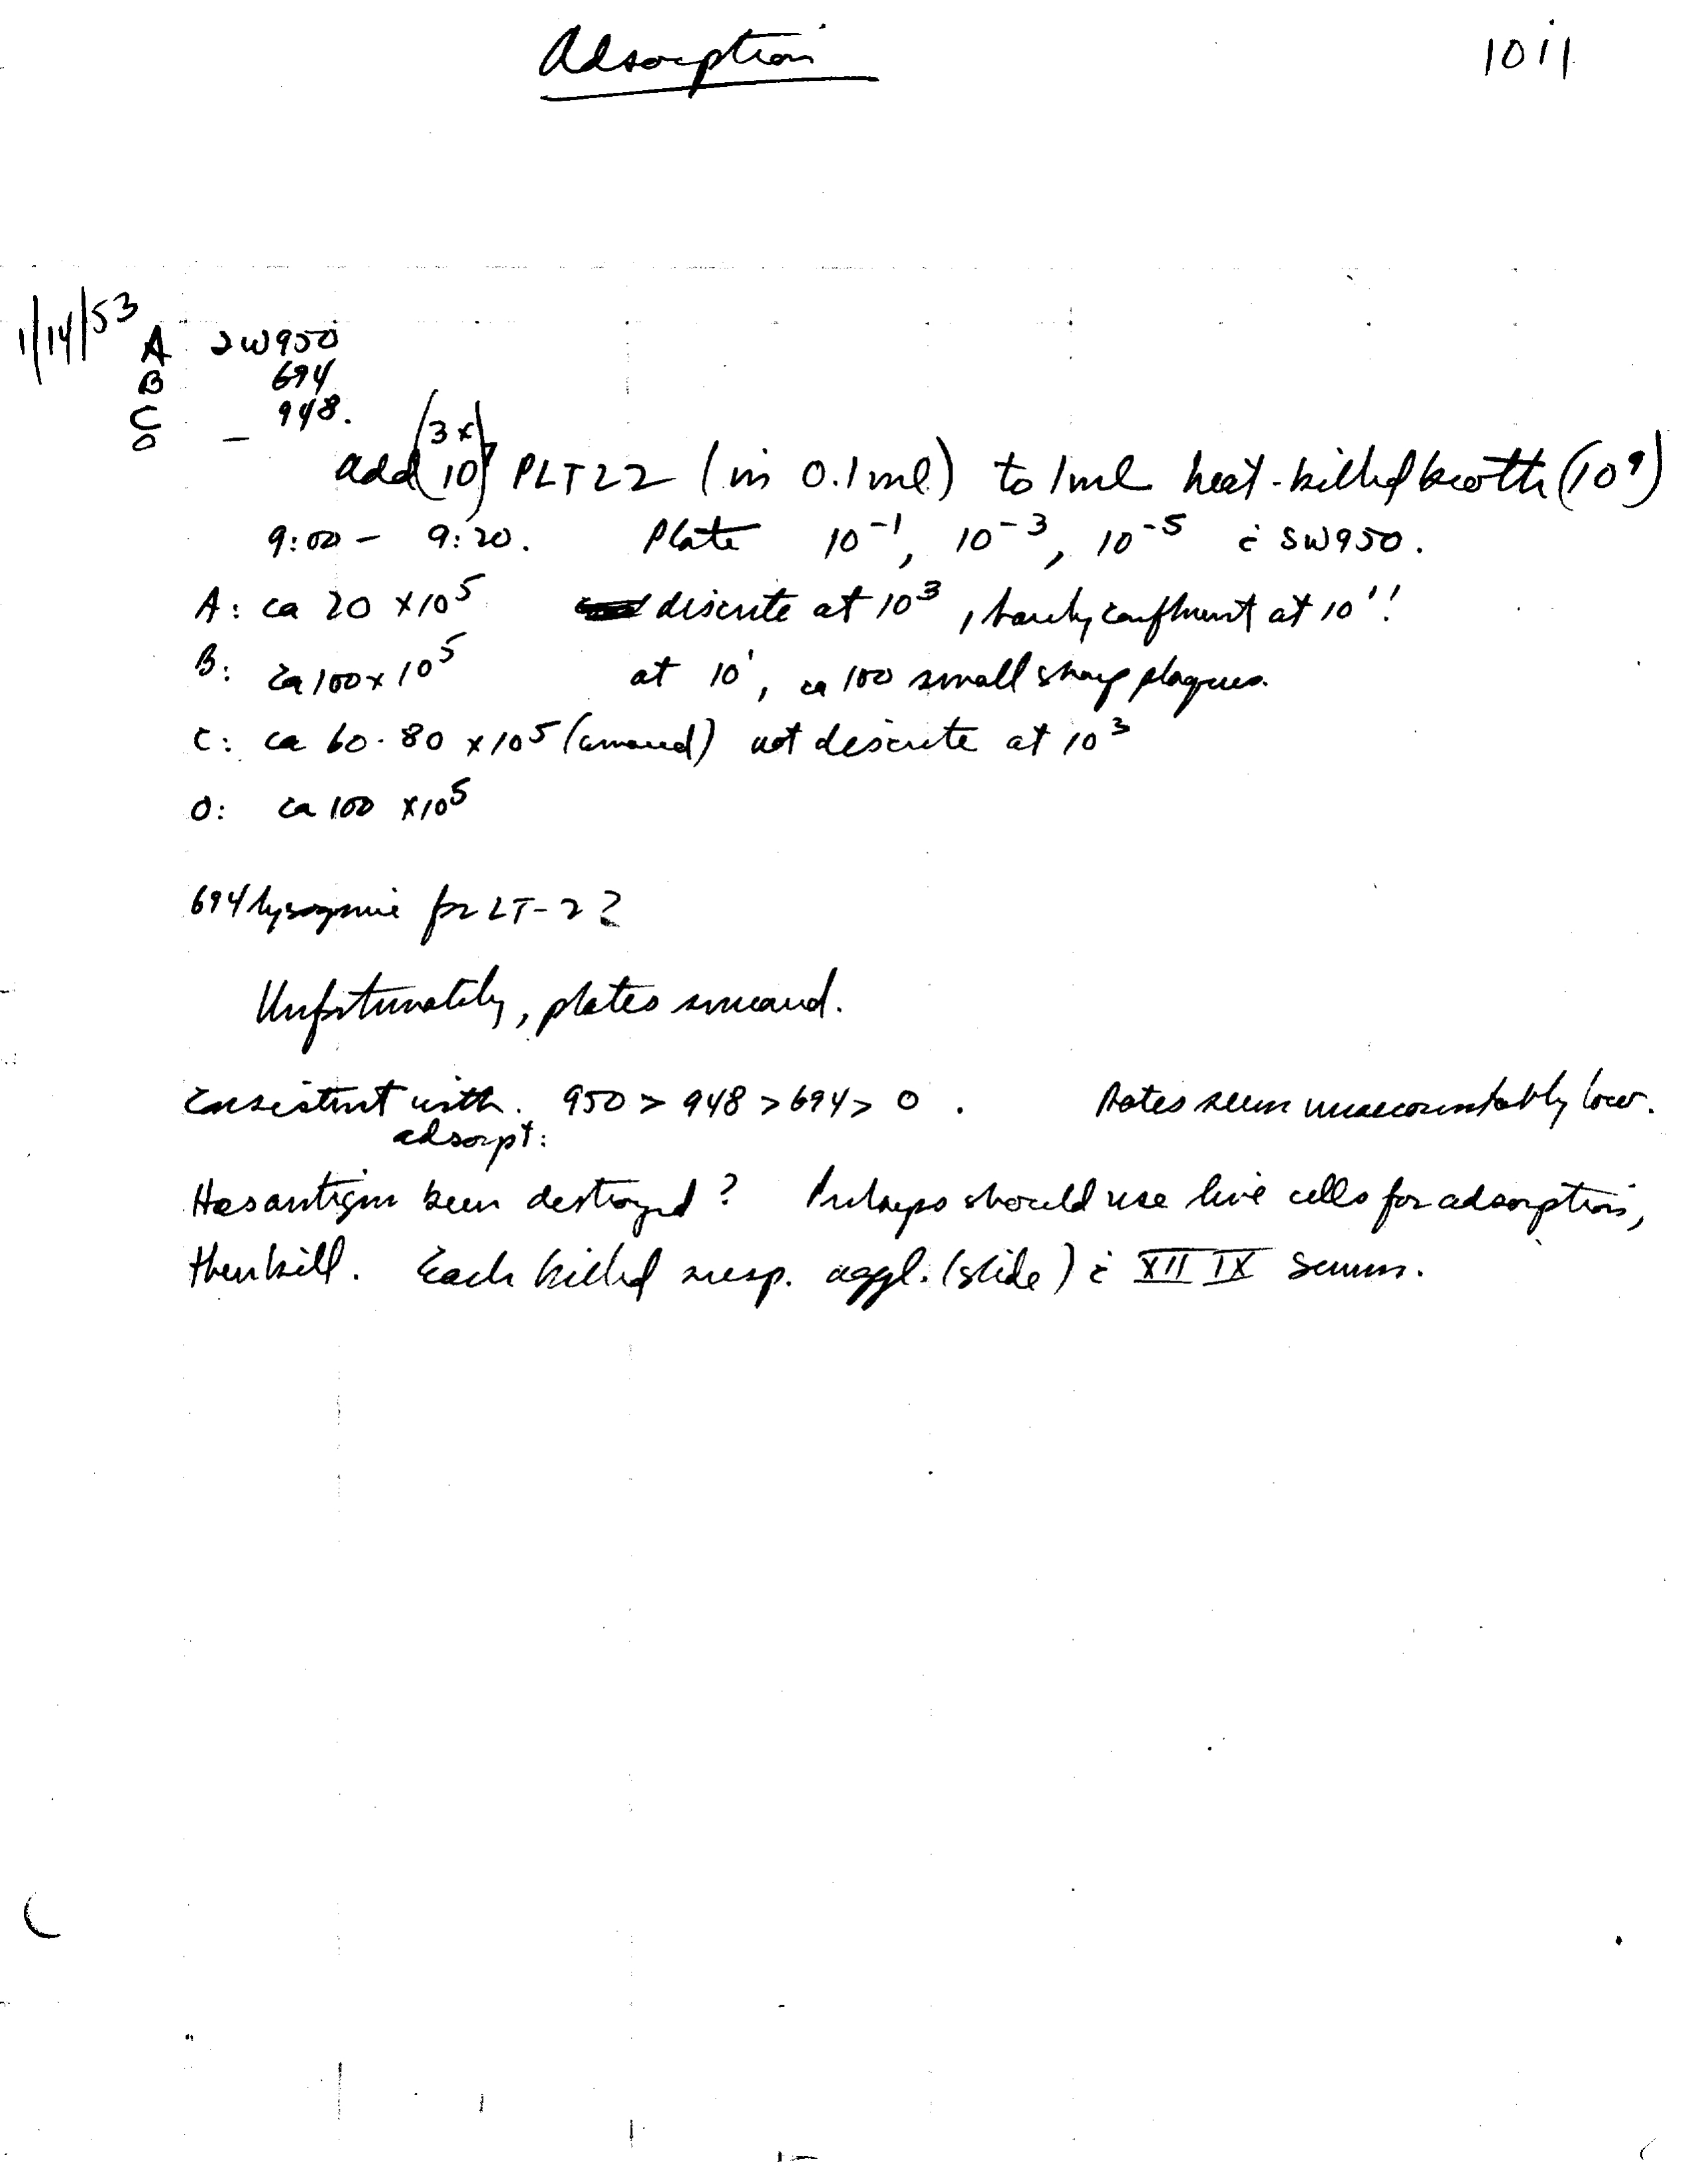 Adsorption
1011
1/14/53
A SW950
B 694
C 948.
O —
(3x)
add (10⁷) PLT22 (in 0.1 ml) to 1 ml heat-killed broth (10⁹)
9:00 – 9:20. Plate 10⁻¹, 10⁻³, 10⁻⁵ c̄ SW950.
A: ca 20 x10⁵ discrete at 10³, barely confluent at 10¹!
B: ca 100 x 10⁵ at 10¹, ca 100 small sharp plaques.
C: ca 60-80 x10⁵ (smeared) not discrete at 10³
O: ca 100 x10⁵
694 lysogenic for LT-2?
Unfortunately, plates smeared.
Consistent with. 950 > 948 > 694 > 0. Rates seem unaccountably low.
adsorpt:
Has antigen been destroyed? Perhaps should use live cells for adsorption,
then kill. Each killed susp. aggl. (slide) c̄ XII IX serum.